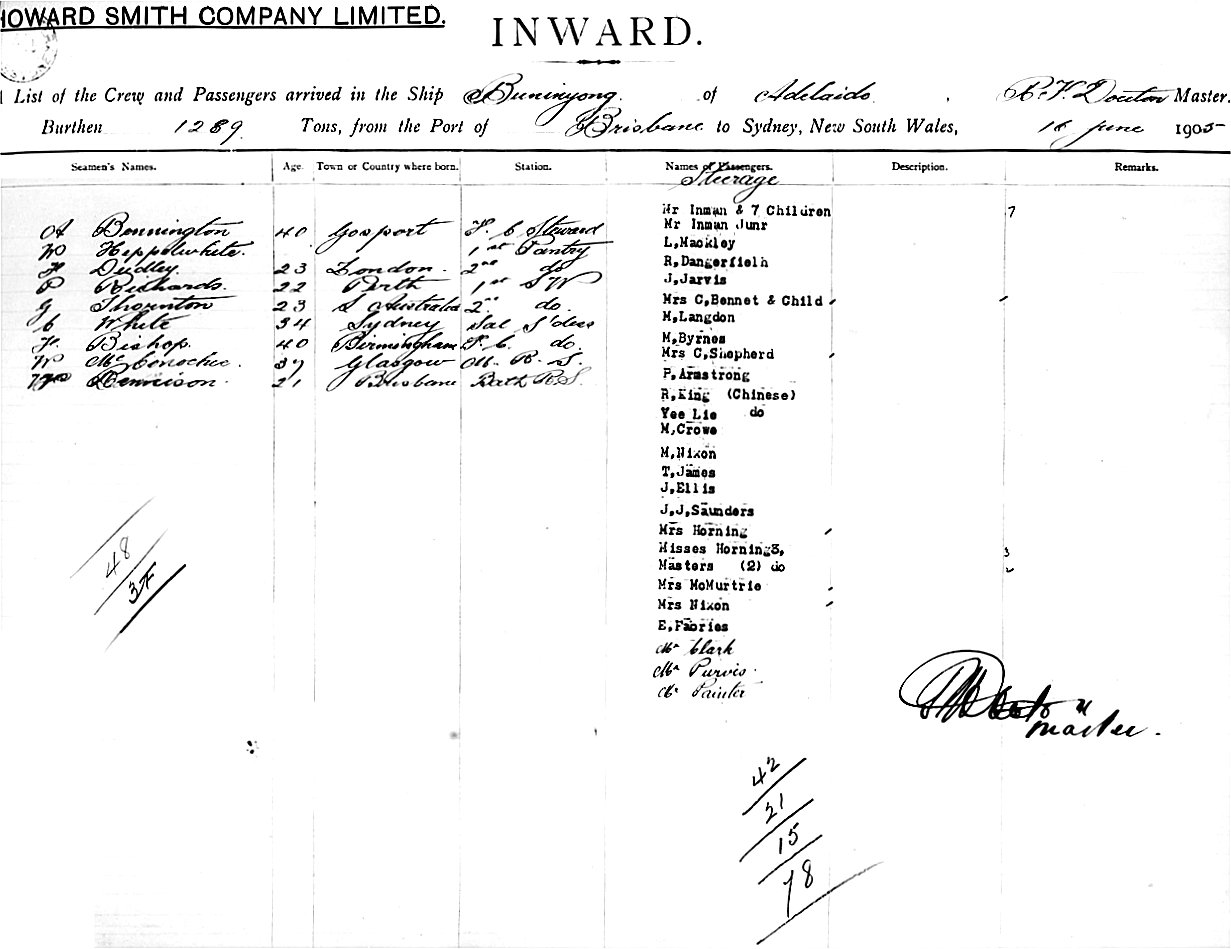 HOWARD SMITH COMPANY LIMITED.
INWARD.
List of the Crew and Passengers arrived in the Ship Buninyong of Adelaide, Master.
Burthen 1289 Tons, from the Port of Brisbane to Sydney, New South Wales, 16 June 1905
Seamen's Names. Age. Town or Country where born. Station. Names of Passengers. Description. Remarks.
Steerage
Mr Inman & 7 Children 7
A Bennington 40 Gosport F. C Steward Mr Inman Junr
W Heppelwhite. 1st Pantry L,Mackley
H Dudley. 23 London. 2nd do R,Dangerfielh
P Richards. 22 Perth 1st S W J,Jarvis
G Thornton 23 S Australia 2nd do. Mrs C,Bennet & Child
C White 34 Sydney Sal M,Langdon
H. Bishop. 40 Birmingham F. C. do. M,Byrnes
W McConochie 37 Glasgow M. R. S. Mrs C,Shepherd
Dennison. 21 Brisbane Bath R.S. P,Armstrong
R,King (Chinese)
Yee Lie do
M,Crowe
M,Nixon
T,James
J,Ellis
J,J,Saunders
Mrs Horning
Misses Horning3, 3
Masters (2) do 2
Mrs McMurtrie
Mrs Nixon
E,Fabries
Mr Clark
Mr Purvis.
Mr Painter
Master.
48
37
42
21
15
78